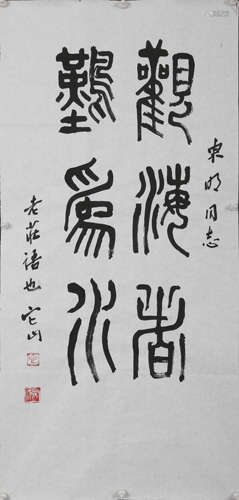 東明同志
觀海者
難爲水
老莊語也 它山